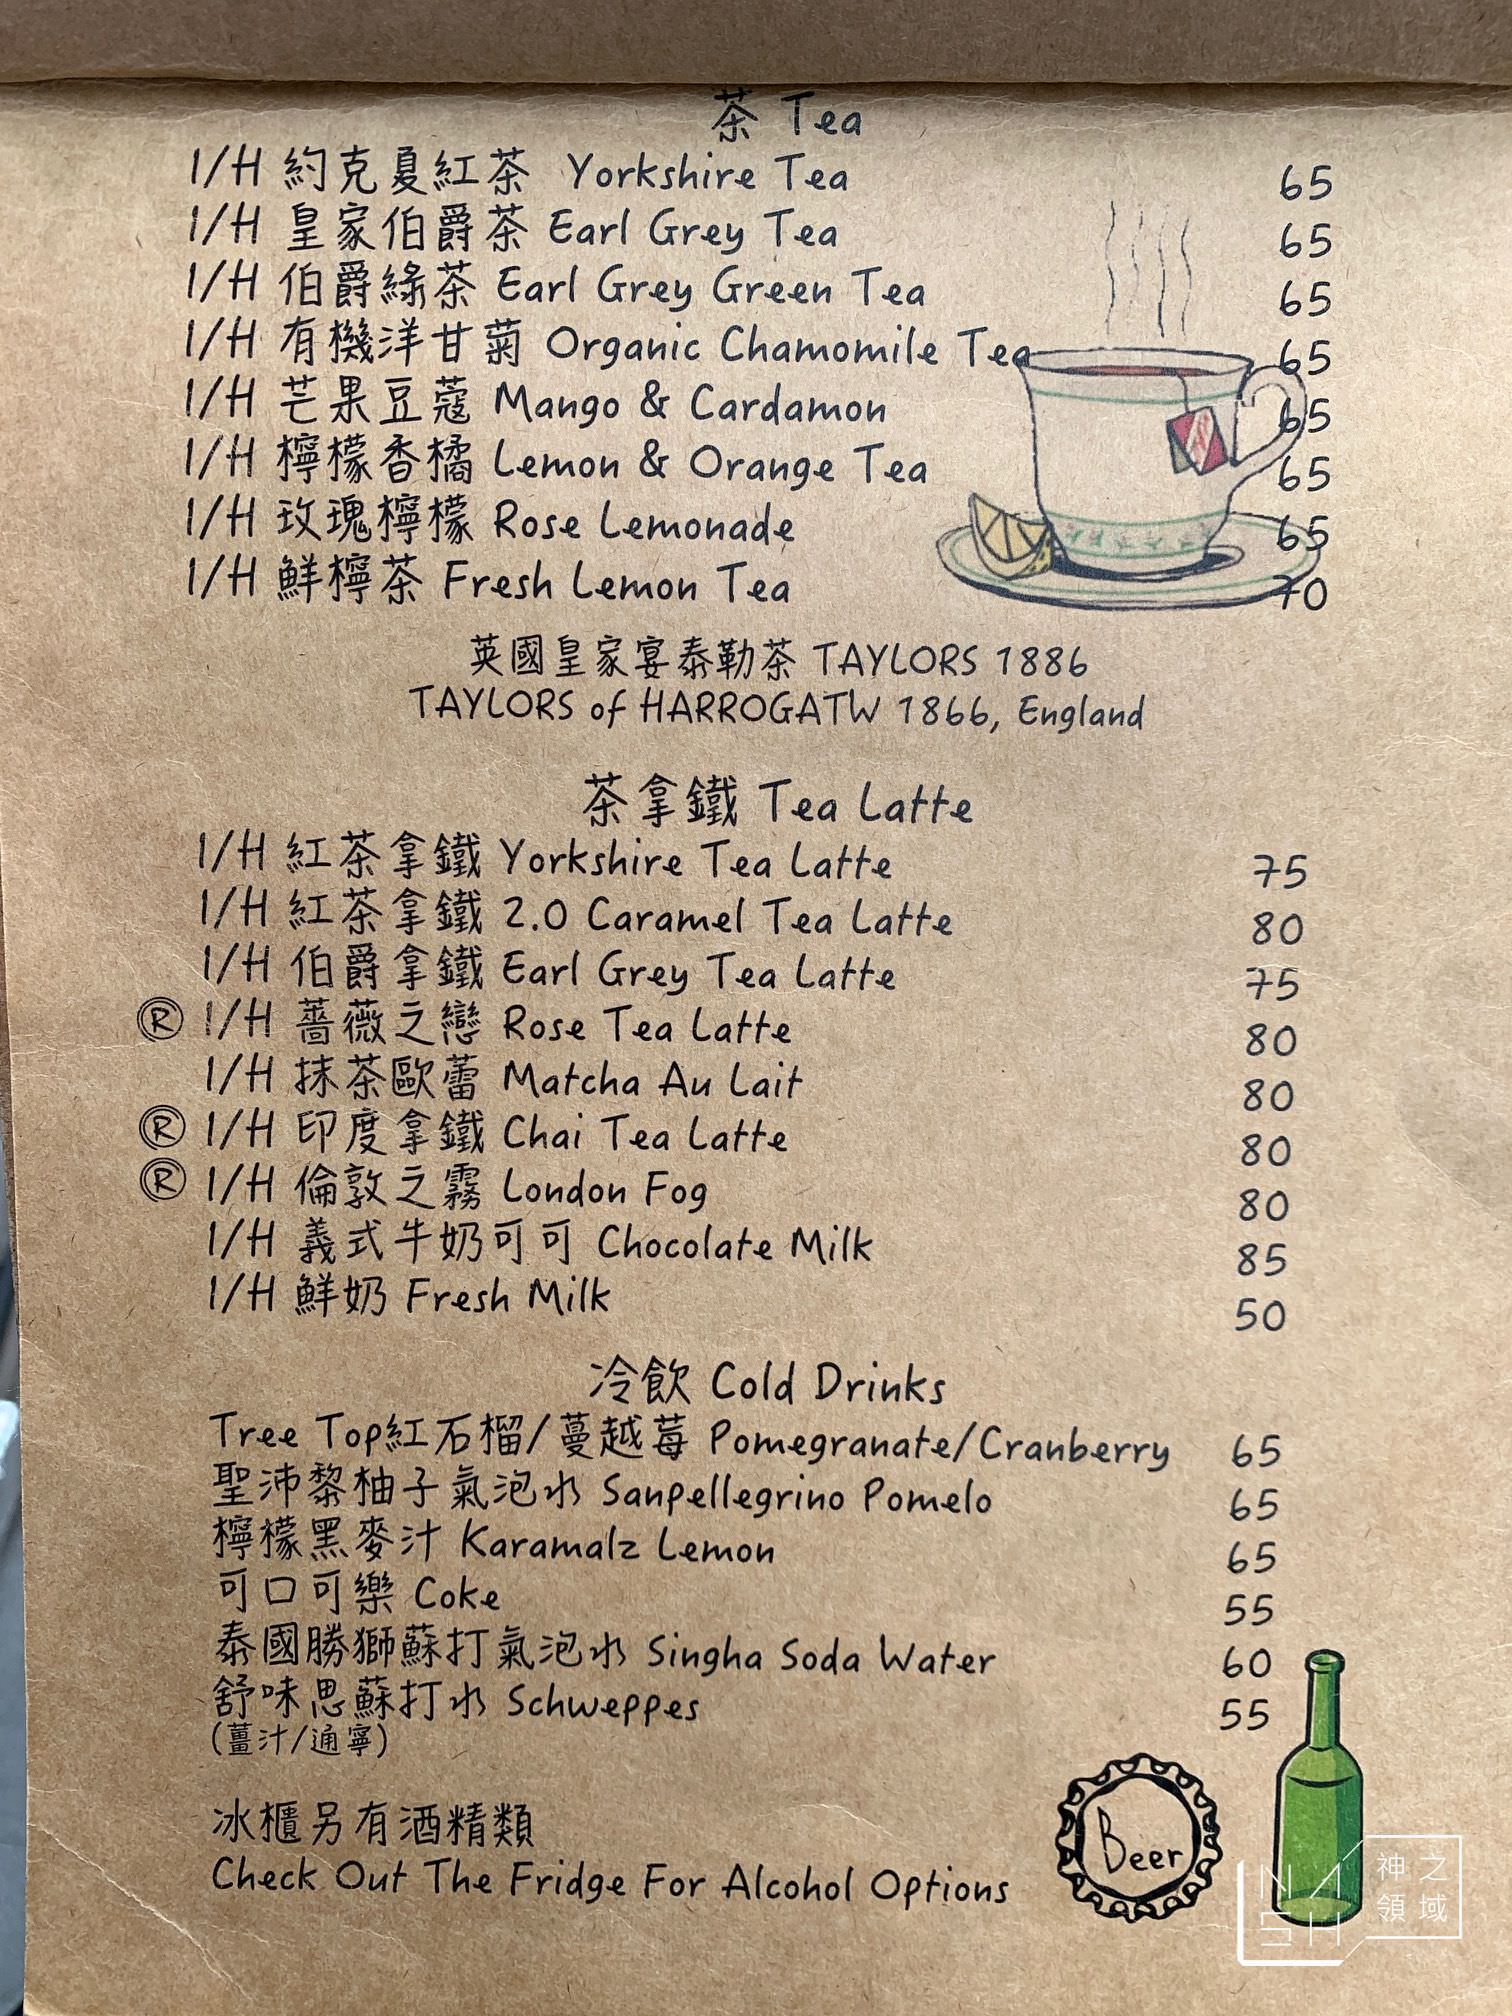 茶 Tea
I/H 約克夏紅茶 Yorkshire Tea 65
I/H 皇家伯爵茶 Earl Grey Tea 65
I/H 伯爵綠茶 Earl Grey Green Tea 65
I/H 有機洋甘菊 Organic Chamomile Tea 65
I/H 芒果豆蔻 Mango & Cardamon 65
I/H 檸檬香橘 Lemon & Orange Tea 65
I/H 玫瑰檸檬 Rose Lemonade 65
I/H 鮮檸茶 Fresh Lemon Tea 70
英國皇家宴泰勒茶 TAYLORS 1886
TAYLORS of HARROGATW 1866, England
茶拿鐵 Tea Latte
I/H 紅茶拿鐵 Yorkshire Tea Latte 75
I/H 紅茶拿鐵 2.0 Caramel Tea Latte 80
I/H 伯爵拿鐵 Earl Grey Tea Latte 75
® I/H 薔薇之戀 Rose Tea Latte 80
I/H 抹茶歐蕾 Matcha Au Lait 80
® I/H 印度拿鐵 Chai Tea Latte 80
® I/H 倫敦之霧 London Fog 80
I/H 義式牛奶可可 Chocolate Milk 85
I/H 鮮奶 Fresh Milk 50
冷飲 Cold Drinks
Tree Top紅石榴/蔓越莓 Pomegranate/Cranberry 65
聖沛黎柚子氣泡水 Sanpellegrino Pomelo 65
檸檬黑麥汁 Karamalz Lemon 65
可口可樂 Coke 55
泰國勝獅蘇打氣泡水 Singha Soda Water 60
舒味思蘇打水 Schweppes 55
(薑汁/通寧)
冰櫃另有酒精類
Check Out The Fridge For Alcohol Options
Beer
NASH 神之領域